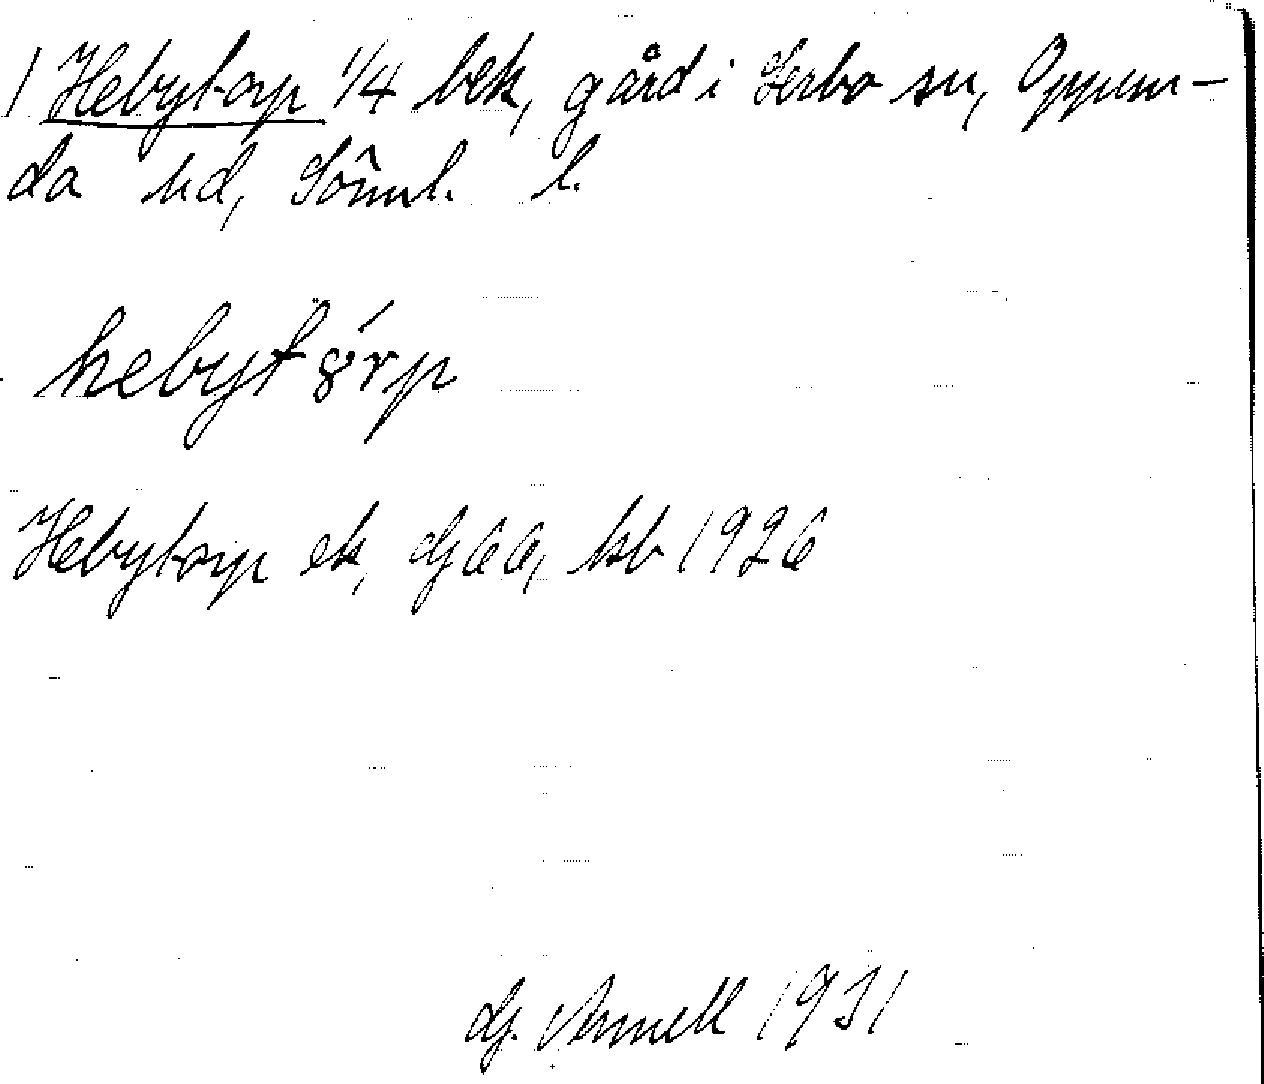 1 Hebytorp 1/4 bek, gård i Lerbo sn, Oppun-
da hd, Söml. l.
hebyt8́rp
Hebytorp ek, Gj 66, ksb 1926
Gj. Annell 1931